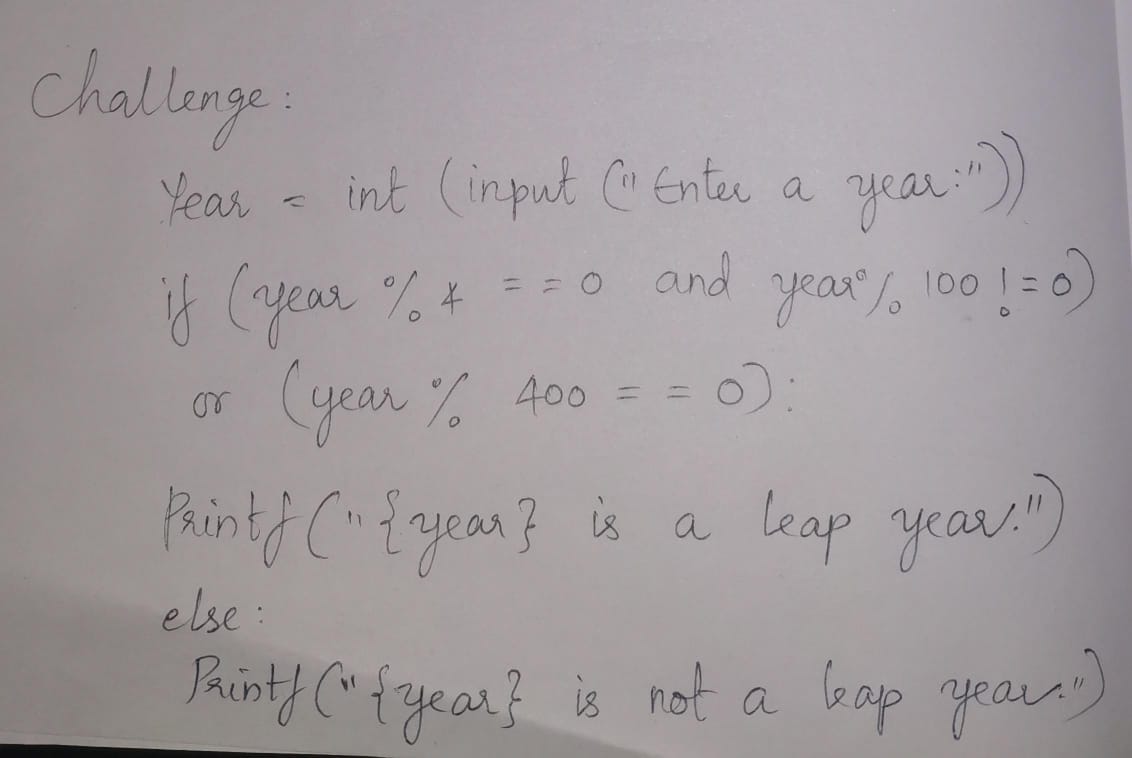 Challenge:
Year = int (input ("Enter a year:"))
if (year % 4 = = 0 and year % 100 != 0)
or (year % 400 = = 0):
Printf("{year} is a leap year.")
else:
Printf("{year} is not a leap year.")